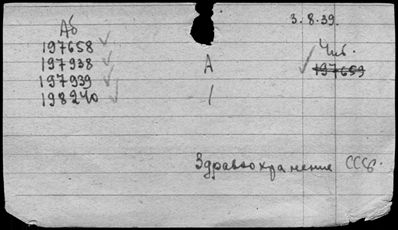 3.8.39.
Аб
197658
197938 А
197939
198240 1
Чит.
197659
Здравоохранение СССР.